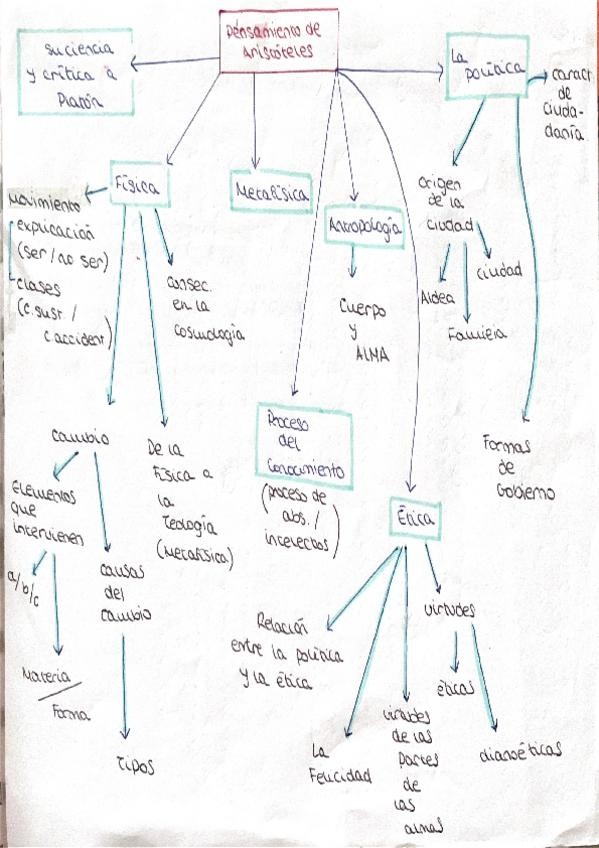 Pensamiento de
Aristóteles
su ciencia
y crítica a
Platón
La
Política
caract
de
Ciuda-
danía.
Física
Metafísica
Antropología
Origen
de la
Ciudad
Movimiento
explicación
(ser / no ser)
clases
(c. sust. /
c. accident)
Consec.
en la
Cosmología
Cuerpo
y
ALMA
Aldea
ciudad
Familia
cambio
De la
Física a
la
Teología
(Metafísica)
Proceso
del
Conocimiento
(proceso de
abs. /
intelectos)
Formas
de
Gobierno
Elementos
que
intervienen
a/b/c
causas
del
cambio
Ética
Materia
Forma
Tipos
Relación
entre la política
y la ética
virtudes
éticas
dianoéticas
La
Felicidad
virtudes
de las
partes
de
las
almas